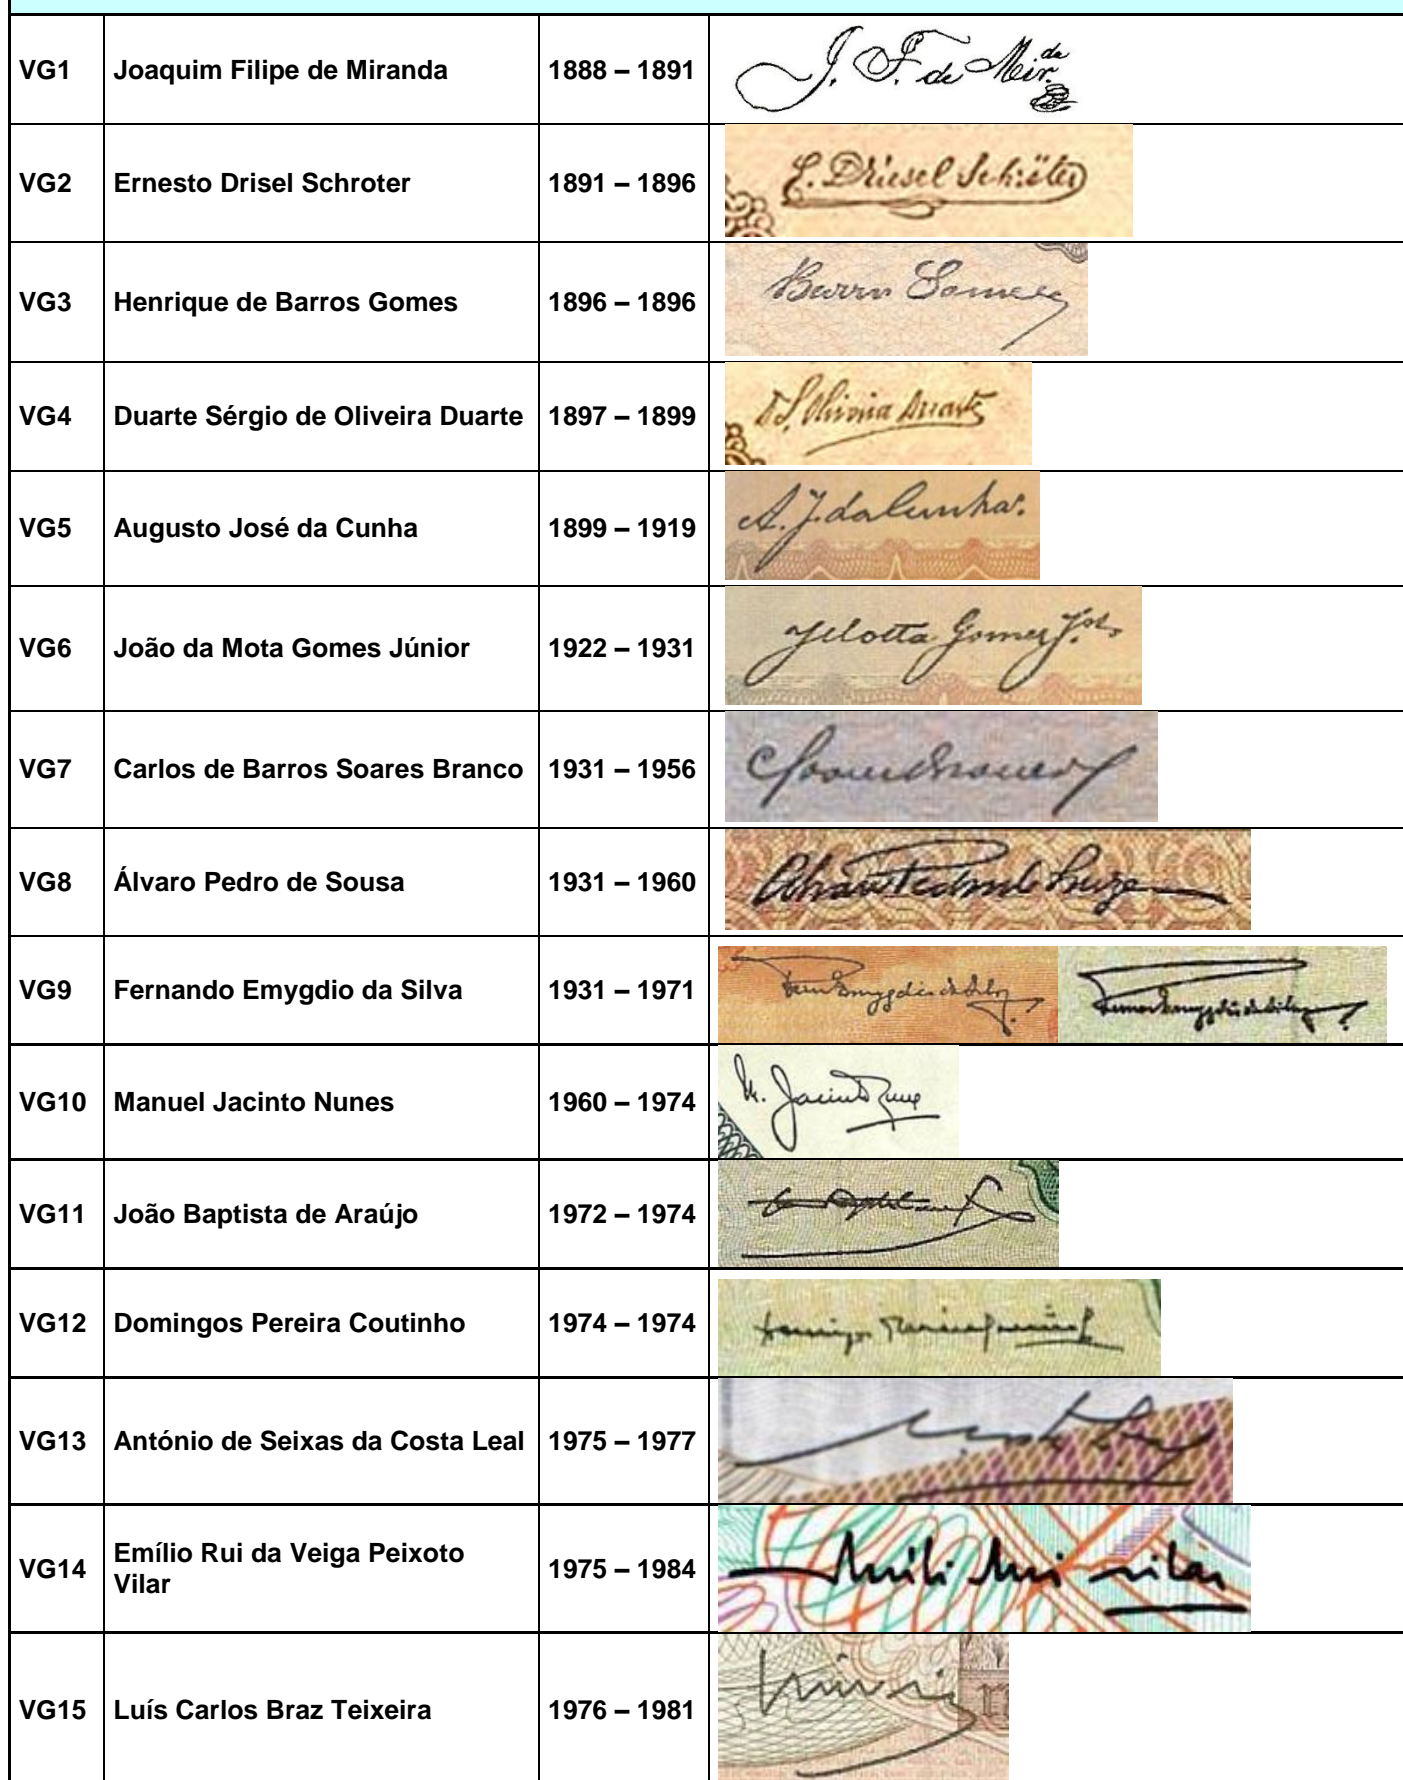 VG1 Joaquim Filipe de Miranda 1888 – 1891 J. F. de Mir.da
VG2 Ernesto Drisel Schroter 1891 – 1896 E. Driesel Schröter
VG3 Henrique de Barros Gomes 1896 – 1896 Barros Gomes
VG4 Duarte Sérgio de Oliveira Duarte 1897 – 1899
VG5 Augusto José da Cunha 1899 – 1919 A. J. da Cunha.
VG6 João da Mota Gomes Júnior 1922 – 1931 JMotta Gomes J.or
VG7 Carlos de Barros Soares Branco 1931 – 1956
VG8 Álvaro Pedro de Sousa 1931 – 1960
VG9 Fernando Emygdio da Silva 1931 – 1971
VG10 Manuel Jacinto Nunes 1960 – 1974 M. Jacinto Nunes
VG11 João Baptista de Araújo 1972 – 1974
VG12 Domingos Pereira Coutinho 1974 – 1974
VG13 António de Seixas da Costa Leal 1975 – 1977
VG14 Emílio Rui da Veiga Peixoto
Vilar 1975 – 1984 Emílio Rui Vilar
VG15 Luís Carlos Braz Teixeira 1976 – 1981